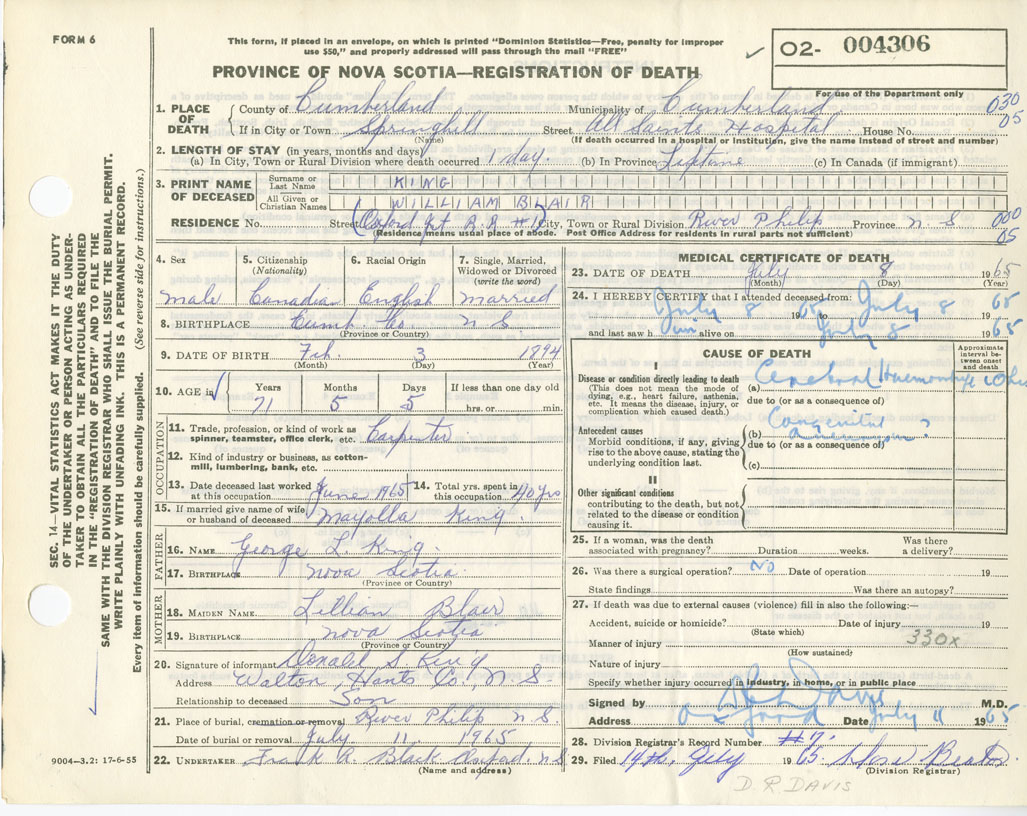 FORM 6
This form, if placed in an envelope, on which is printed "Dominion Statistics—Free, penalty for improper
use $50," and properly addressed will pass through the mail "FREE"
02- 004306
PROVINCE OF NOVA SCOTIA—REGISTRATION OF DEATH
For use of the Department only
1. PLACE OF DEATH { County of Cumberland Municipality of Cumberland 030
If in City or Town Springhill Street All Saints Hospital House No. 05
(Name) (If death occurred in a hospital or institution, give the name instead of street and number)
2. LENGTH OF STAY (in years, months and days)
(a) In City, Town or Rural Division where death occurred 1 day. (b) In Province Liftime (c) In Canada (if immigrant)
3. PRINT NAME OF DECEASED { Surname or Last Name KING
All Given or Christian Names WILLIAM BLAIR
RESIDENCE No. Street (Oxford Jct R.R #1) City, Town or Rural Division River Philip Province N S 000
(Residence means usual place of abode. Post Office Address for residents in rural parts not sufficient) 05
4. Sex male
5. Citizenship (Nationality) Canadian
6. Racial Origin English
7. Single, Married, Widowed or Divorced (write the word) married
8. BIRTHPLACE Cumb. Co. N S.
(Province or Country)
9. DATE OF BIRTH Feb. 3 1894
(Month) (Day) (Year)
10. AGE in Years Months Days If less than one day old
71 5 5 hrs. or min.
OCCUPATION
11. Trade, profession, or kind of work as Carpenter
spinner, teamster, office clerk, etc.
12. Kind of industry or business, as cotton-
mill, lumbering, bank, etc.
13. Date deceased last worked at this occupation June 1965 14. Total yrs. spent in this occupation 40 yrs
15. If married give name of wife
or husband of deceased Mayolla King
FATHER
16. NAME George L. King.
17. BIRTHPLACE Nova Scotia.
(Province or Country)
MOTHER
18. MAIDEN NAME Lillian Blair
19. BIRTHPLACE Nova Scotia
(Province or Country)
20. Signature of informant Donald S. King
Address Walton, Hants Co., N. S-
Relationship to deceased Son
21. Place of burial, cremation or removal River Philip N S.
Date of burial or removal July 11 1965
22. UNDERTAKER Frank A. Black Oxford. N S
(Name and address)
MEDICAL CERTIFICATE OF DEATH
23. DATE OF DEATH July 8 1965
(Month) (Day) (Year)
24. I HEREBY CERTIFY that I attended deceased from:
July 8 1965 to July 8 1965
and last saw him alive on July 8 1965
CAUSE OF DEATH
Approximate interval between onset and death
I
Disease or condition directly leading to death (a) Cerebral Haemorrhage
(This does not mean the mode of
dying, e.g., heart failure, asthenia,
etc. It means the disease, injury, or
complication which caused death.)
due to (or as a consequence of)
Antecedent causes (b) Congenital aneurysm ?
Morbid conditions, if any, giving
rise to the above cause, stating the
underlying condition last.
due to (or as a consequence of)
(c)
II
Other significant conditions
contributing to the death, but not
related to the disease or condition
causing it.
25. If a woman, was the death Was there
associated with pregnancy? Duration weeks. a delivery?
26. Was there a surgical operation? No Date of operation 19
State findings Was there an autopsy?
27. If death was due to external causes (violence) fill in also the following:—
Accident, suicide or homicide? Date of injury 19
(State which)
Manner of injury 330x
(How sustained)
Nature of injury
Specify whether injury occurred in industry, in home, or in public place
Signed by Davis M.D.
Address Date July 11 1965
28. Division Registrar's Record Number #7.
29. Filed 14th, July 1965
(Division Registrar)
D. R. DAVIS
SEC. 14—VITAL STATISTICS ACT MAKES IT THE DUTY
OF THE UNDERTAKER OR PERSON ACTING AS UNDER-
TAKER TO OBTAIN ALL THE PARTICULARS REQUIRED
IN THE "REGISTRATION OF DEATH" AND TO FILE THE
SAME WITH THE DIVISION REGISTRAR WHO SHALL ISSUE THE BURIAL PERMIT.
WRITE PLAINLY WITH UNFADING INK. THIS IS A PERMANENT RECORD.
Every item of information should be carefully supplied. (See reverse side for instructions.)
9004—3.2: 17-6-55